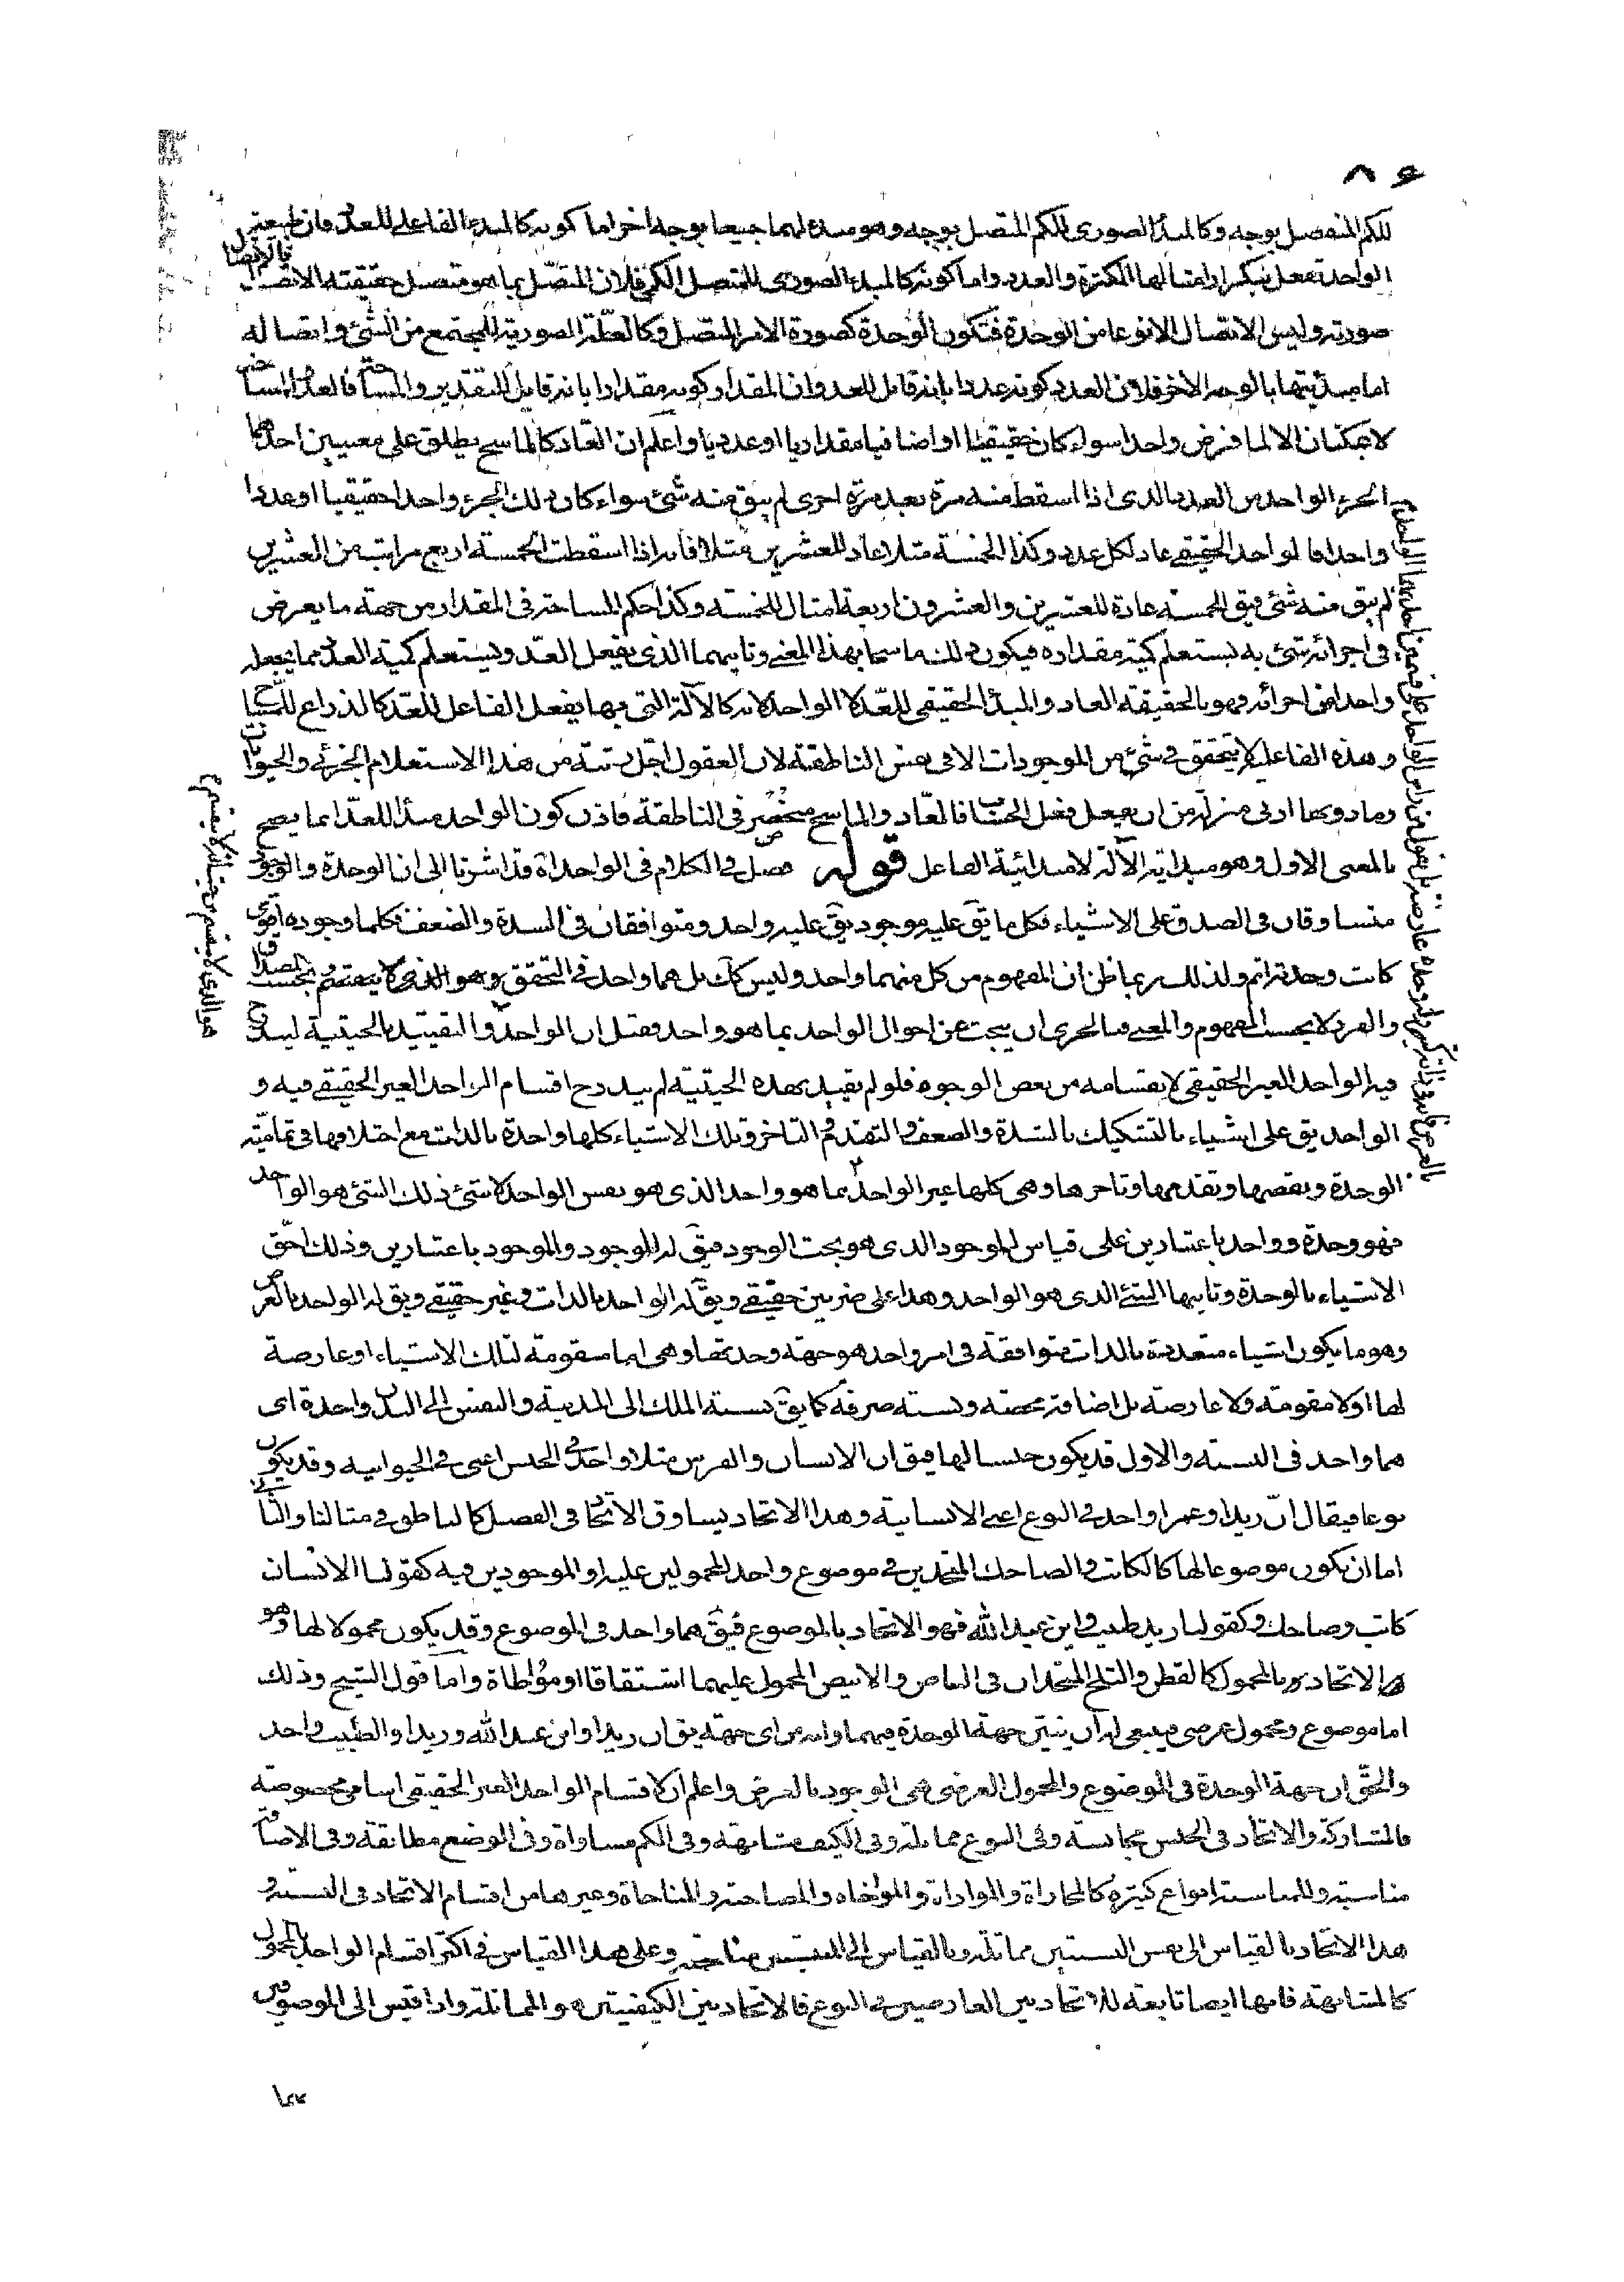 ٨٦
للكم المنفصل بوجه وكالمبدأ الصورى للكم المتصل بوجه وهو مبدء لهما جميعا بوجه اخر اما كونه كالمبدء الفاعلى للعدد فان طبيعة
الواحد تفعل بتكرار امثالها الكثرة والعدد واما كونه كالمبدء الصورى للمتصل الكمى فلان المتصل بما هو متصل حقيقته الاتصال
صورته وليس الاتصال الا نوعا من الوحدة فتكون الوحدة كصورة الامر المتصل وكالعلة الصورية للمجتمع من الشئ واتصاله
اما مبدئيتها بالوجه الاخر فلان العدد كونه عددا بانه قابل للعد وان المقدار كونه مقدارا بانه قابل للتقدير والمساحة فالعد والمساحة
لا يمكنان الا لما فرض واحدا سواء كان حقيقيا او اضافيا مقداريا او عدديا واعلم ان العاد كالماسح يطلق على معنيين احدهما
الجزء الواحد من العدد الذى اذا اسقط منه مرة بعد مرة اخرى لم يبق منه شئ سواء كان ذلك الجزء واحدا حقيقيا او عددا
واحدا فالواحد الحقيقى عاد لكل عدد وكذا الخمسة مثلا عاد للعشرين مثلا فانه اذا اسقطت الخمسة اربع مراتب من العشرين
لم يبق منه شئ فيق الخمسة عادة للعشرين والعشرون اربعة امثال للخمسة وكذا حكم المساحة فى المقدار من جهة ما يعرض
فى اجزائه شئ به يستعلم كمية مقداره فيكون ذلك ماسحا بهذا المعنى وثانيهما الذى يفعل العد ويستعلم كمية العدد مما يجعله
واحدا من اجزائه فهو بالحقيقة العاد والمبدأ الحقيقى للعد لا الواحد لانه كالآلة التى بها يفعل الفاعل للعد كالذراع للمساح
وهذه الفاعلية لا يتحقق فى شئ من الموجودات الا فى نفس الناطقة لان العقول اجل رتبة من هذا الاستعلام الجزئى والحيوان
وما دونها ادنى منزلة من ان يفعل فعل الحساب فالعاد والماسح منحصر فى الناطقة فاذن كون الواحد مبدأ للعد انما يصح
بالمعنى الاول وهو مبدائية الآلة لا مبدائية الفاعل قوله فصل فى الكلام فى الواحد اه قد اشرنا الى ان الوحدة والوجود
متساوقان فى الصدق على الاشياء فكل ما يق عليه موجود يق عليه واحد ومتوافقان فى الشدة والضعف فكلما وجوده اقوى
كانت وحدته اتم ولذلك ربما ظن ان المفهوم من كل منهما واحد وليس كك بل هما واحد فى التحقق بحسب الصدق
والفرد لا بحسب المفهوم والمعنى فبالحرى ان يبحث عن احوال الواحد بما هو واحد فقيل ان الواحد والتقييد بالحيثية ليندرج
فيه الواحد الغير الحقيقى لانقسامه من بعض الوجوه فلو لم يقيد بهذه الحيثية لم يندرج اقسام الواحد الغير الحقيقى فيه و
الواحد يق على اشياء بالتشكيك بالشدة والضعف والتقدم والتاخر وتلك الاشياء كلها واحدة بالذات مع اختلافها فى تمامية
الوحدة ونقصها وتقدمها وتاخرها وهى كلها غير الواحد بما هو واحد الذى هو نفس الواحد لا شئ ذلك الشئ هو الواحد
فهو وحدة وواحد باعتبارين على قياس الموجود الذى هو بحت الوجود فيق له الوجود والموجود باعتبارين وذلك احق
الاشياء بالوحدة وثانيها الشئ الذى هو الواحد وهذا على ضربين حقيقى ويق له الواحد بالذات وغير حقيقى ويق له الواحد بالعرض
وهو ما يكون اشياء متعددة بالذات متوافقة فى امر واحد هو جهة وحدتها وهى اما مقومة لتلك الاشياء او عارضة
لها او لا مقومة ولا عارضة بل اضافة محضة ونسبة صرفة كما يق نسبة الملك الى المدينة والنفس الى البدن واحدة اى
هما واحد فى النسبة والاول قد يكون جنسا لها فيق ان الانسان والفرس مثلا واحد فى الجنس اعنى فى الحيوانية وقد يكون
نوعا فيقال ان زيدا وعمرا واحد فى النوع اعنى الانسانية وهذا الاتحاد يساوق الاتحاد فى الفصل كالناطق فى مثالنا والثانى
اما ان يكون موضوعا لها كالكاتب والضاحك المتحدين فى موضوع واحد المحمولين عليه او الموجودين فيه كقولنا الانسان
كاتب وضاحك وكقولنا زيد طبيب وابن عبد الله فهو الاتحاد بالموضوع فيق هما واحد فى الموضوع وقد يكون محمولا لها وهو
الاتحاد بالمحمول كالقطن والثلج المتحدان فى البياض والابيض المحمول عليهما اشتقاقا او مواطاة واما قول الشيخ وذلك
اما موضوع ومحمول عرضى فينبغى له ان يبين جهة الوحدة فيهما وانه من اى جهة يق ان زيدا وابن عبد الله وزيدا والطبيب واحد
والحق ان جهة الوحدة فى الموضوع والمحمول العرضى هى الوجود بالعرض واعلم ان لاقسام الواحد الغير الحقيقى اسامى مخصوصة
فالمشاركة والاتحاد فى الجنس مجانسة وفى النوع مماثلة وفى الكيف مشابهة وفى الكم مساواة وفى الوضع مطابقة وفى الاضافة
مناسبة وللمناسبة انواع كثيرة كالمحاذاة والموازاة والمواخاه والمصاحبة وغيرها من اقسام الاتحاد فى النسبة و
هذا الاتحاد بالقياس الى نفس النسبتين مماثلة وبالقياس الى المنتسبين مناسبة وعلى هذا القياس فى اكثر اقسام الواحد بالمحمول
كالمشابهة فانها ايضا تابعة للاتحاد بين العارضين فى النوع فالاتحاد بين الكيفيتين هو المماثلة واذا قيس الى الموصوفين